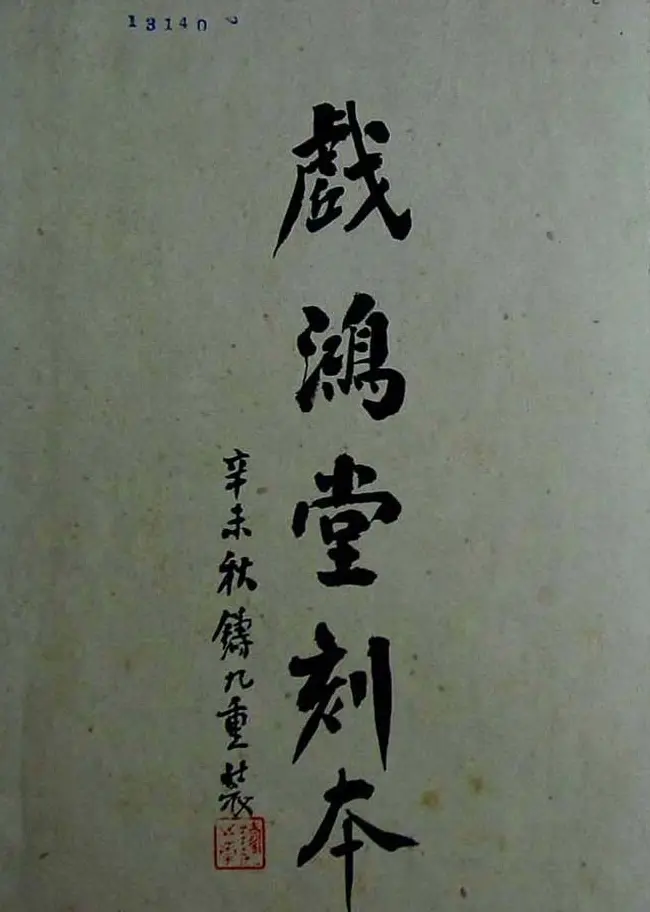 13140
戲鴻堂刻本
辛未秋鑄九重裝